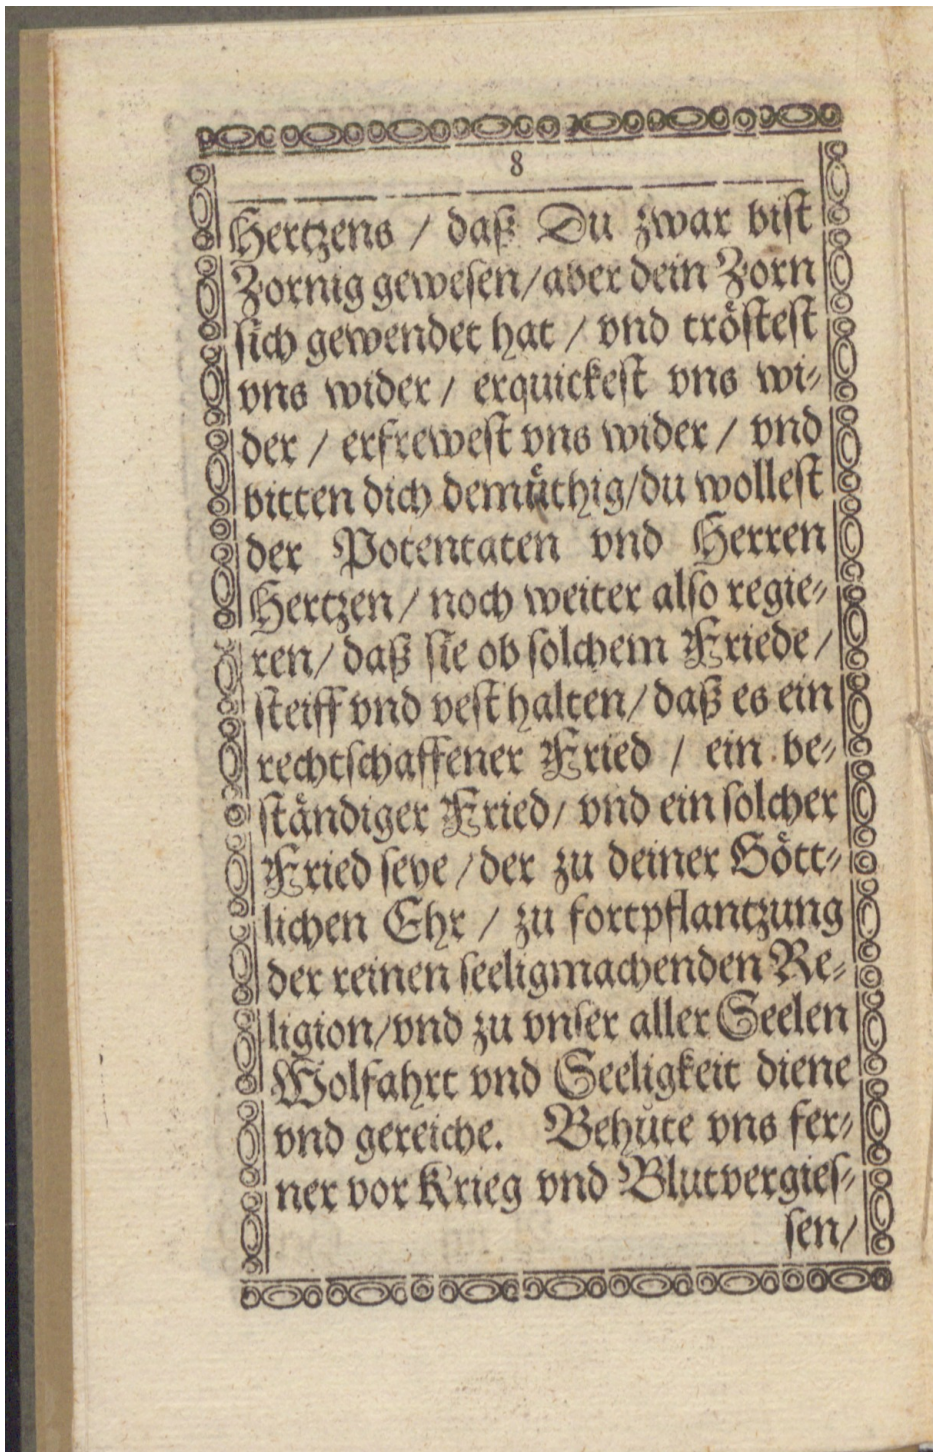 8
Hertzens / daß Du zwar bist
Zornig gewesen/aber dein Zorn
sich gewendet hat / vnd tröstest
vns wider / erquickest vns wi-
der / erfrewest vns wider / vnd
bitten dich demüthig/du wollest
der Potentaten vnd Herren
Hertzen / noch weiter also regie-
ren/ daß sie ob solchem Friede /
steiff vnd vest halten/ daß es ein
rechtschaffener Fried / ein be-
ständiger Fried/ vnd ein solcher
Fried seye / der zu deiner Gött-
lichen Ehr / zu fortpflantzung
der reinen seeligmachenden Re-
ligion/vnd zu vnser aller Seelen
Wolfahrt vnd Seeligkeit diene
vnd gereiche. Behüte vns fer-
ner vor Krieg vnd Blutvergies-
sen/